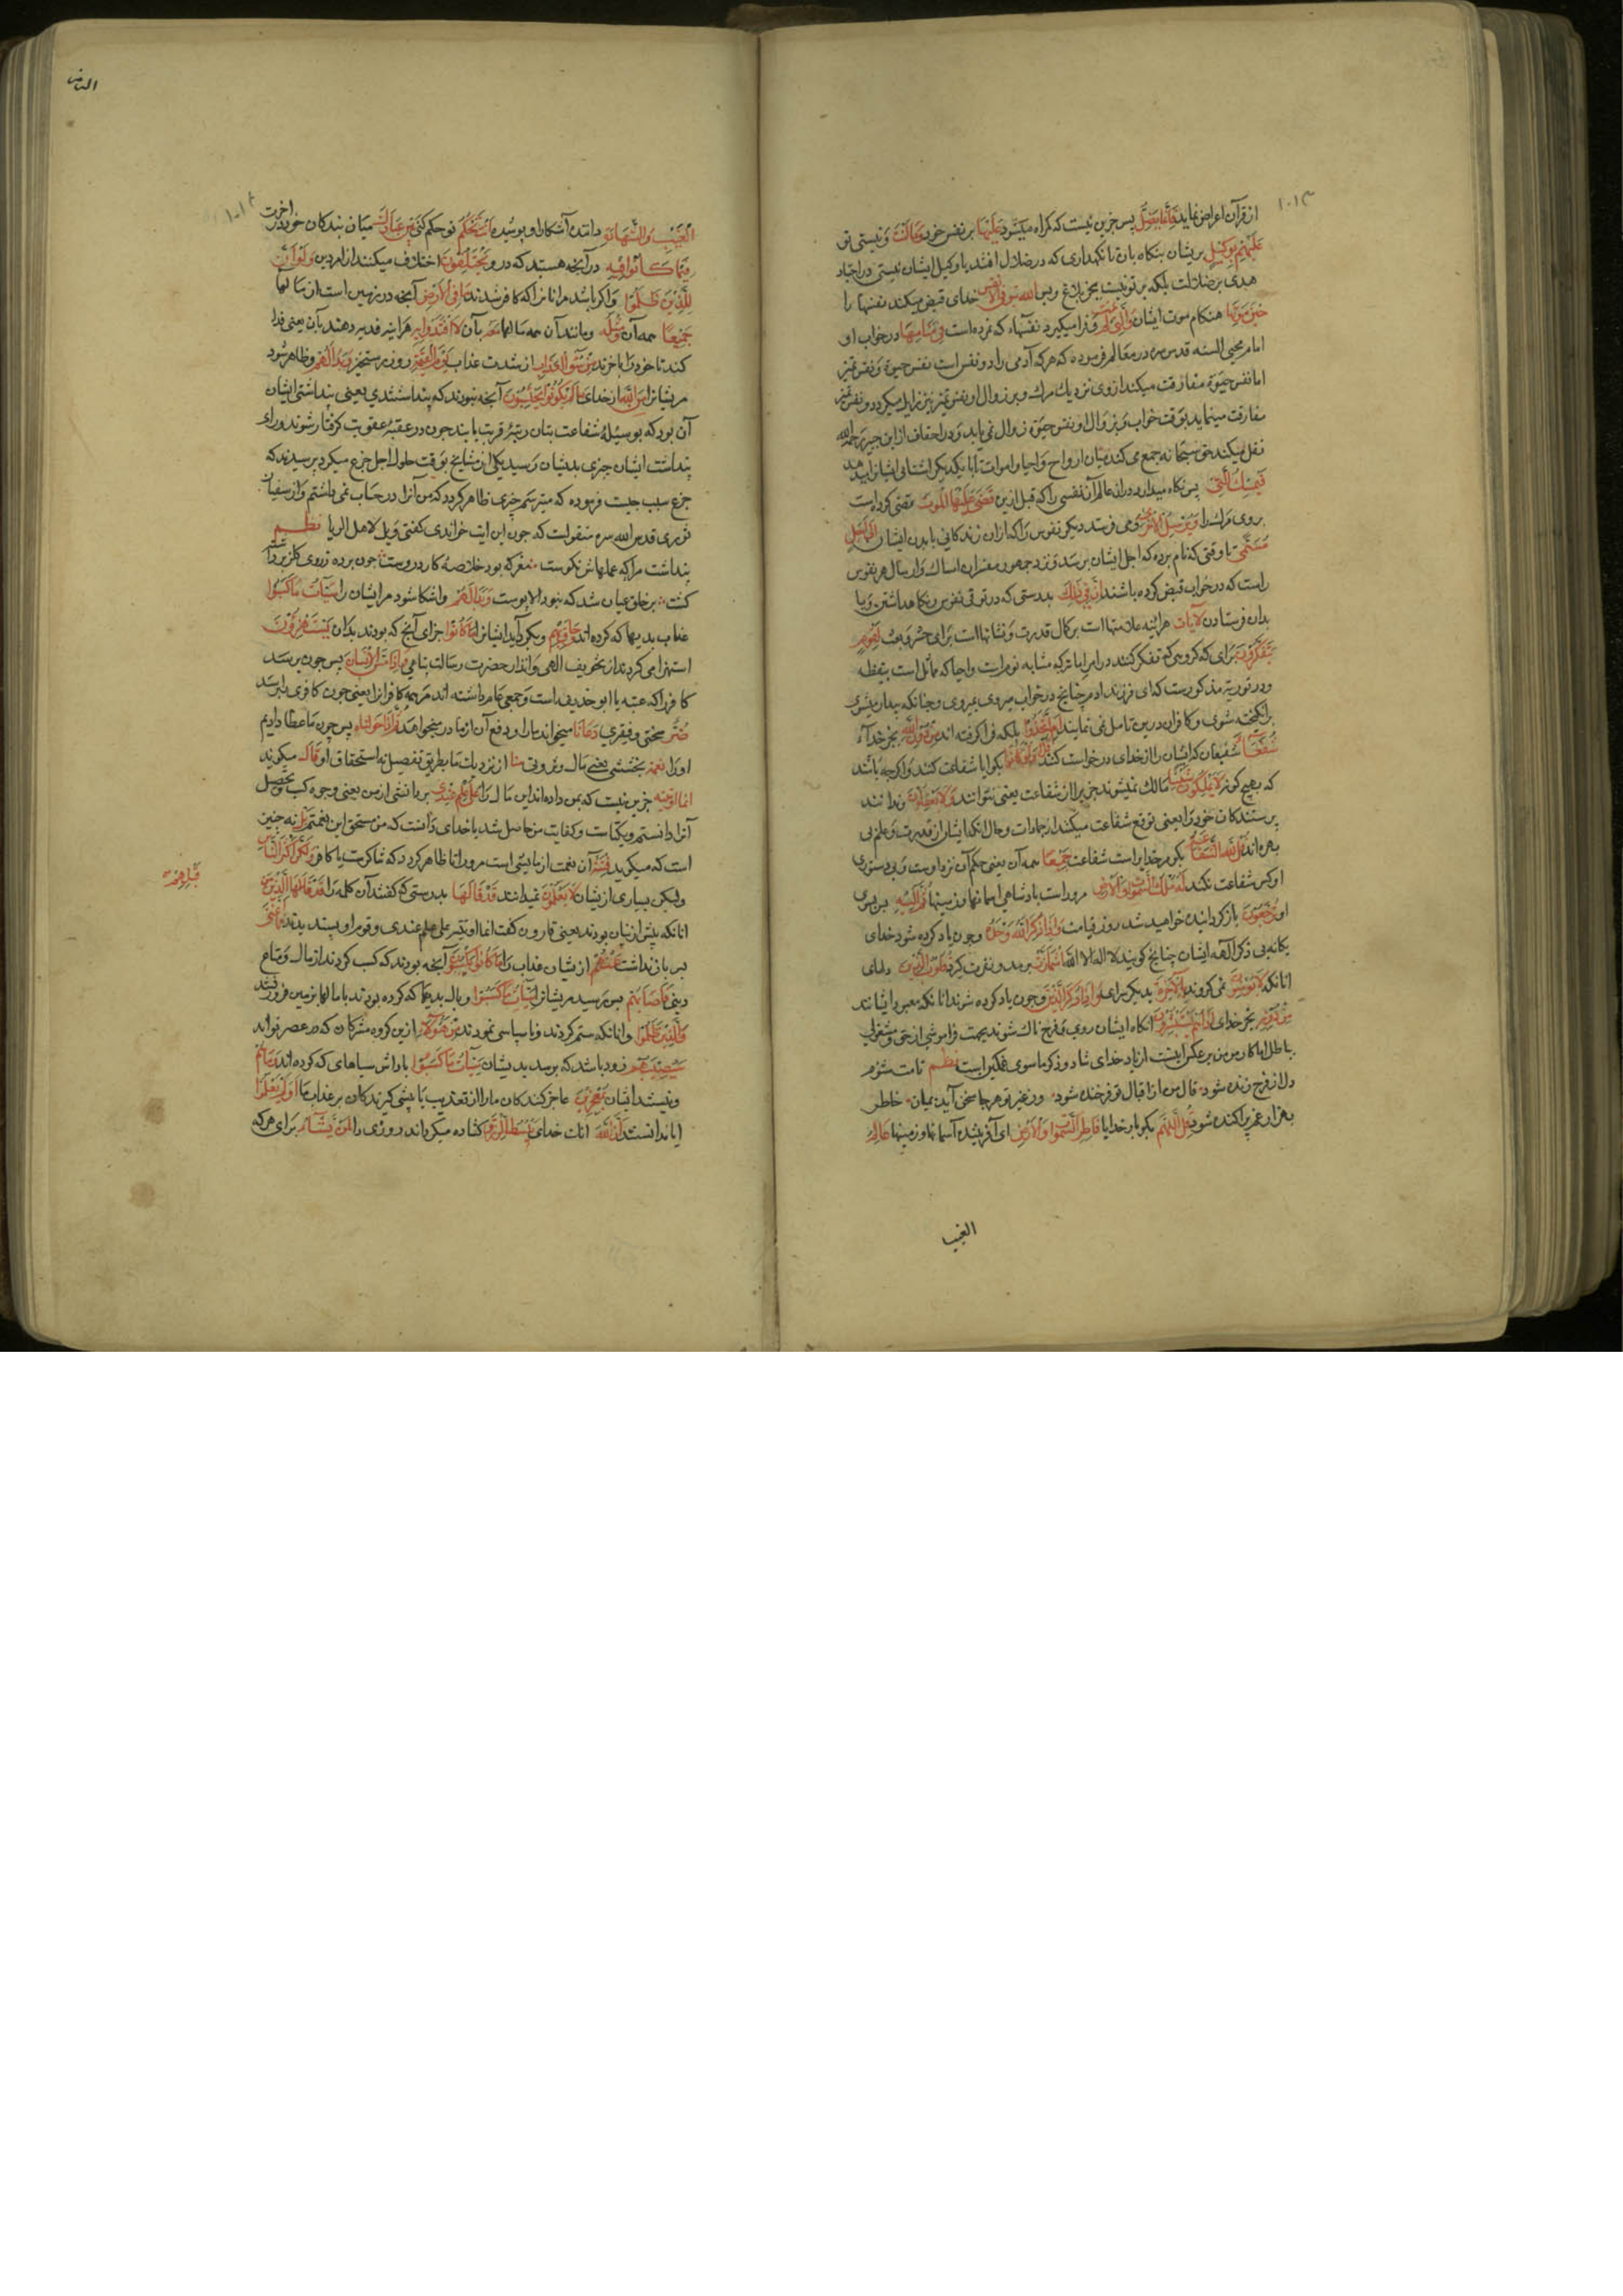 ۱۰۱۳
از قرآن اعراض نماید فَاِنَّمَا یَضِلُّ پس جزین نیست که کمراه میشود عَلَیْهَا بر نفس خود وَمَا اَنْتَ و نیستی تو
عَلَیْهِمْ بِوَکِیلٍ بریشان بنکاه بان تا نکهداری که در ضلال افتد یا وکیل ایشان نیستی در اجتاد
هدی بر ضلالت بلکه بر تو نیست بجز بلاغ و بس اَللّٰهُ یَتَوَفَّی الْاَنْفُسَ خدای قبض میکند نفسها را
حِینَ مَوْتِهَا هنکام موت ایشان وَالَّتِی لَمْ تَمُتْ و فرا میکیرد نفسهاء که نمرده است فِی مَنَامِهَا در خواب او
امام محیی السنه قدس سره در معالم فرموده که هر که آدمی را دو نفس است نفس حیوة و نفس تمیز
اما نفس حیوة مفارقت میکند از وی نزدیك مرك و بزوال او نفس تمیز نیز زایل میکردد و نفس تمیز
مفارقت مینماید بوقت خواب و بزوال او نفس حیوة زوال نمی یابد و در احقاف از ابن جبیر رحمه الله
نقل میکند حق سبحانه جمع می کند میان ارواح و احیا و اموات تا با یکدیکر اشنائی ایشانرا
فَیُمْسِكُ الَّتِی پس نکاه میدارد در ان عالم آن نفسی را که قبل ازین قَضٰی عَلَیْهَا الْمَوْتَ مقضی کرده است
بروی مرك را وَیُرْسِلُ الْاُخْرٰی و می فرستد دیکر نفوس را که از ان زندکانی با بدن ایشان اِلٰی اَجَلٍ
مُسَمًّی تا وقتی که نام برده که اجل ایشان برسد و نزد جمهور مفسران امساك و ارسال هر نفوس
راست که در خواب قبض کرده باشند اِنَّ فِی ذٰلِكَ بدرستی که در توفی نفوس و نکاهداشتن و یا
بدان فرستادن لَاٰیَاتٍ هر اینه علامتهاست بر کمال قدرت و نشانهاست برای حشر و بعث لِقَوْمٍ
یَتَفَکَّرُونَ برای کروهی که تفکر کنند در امر اماته که مشابه نومست و احیا که مماثل است بیقظه
و در توریة مذکورست که ای فرزند ادم چنانچ در خواب میروی بمیروی و چنانکه بیدار میشوی
برانکیخته شوی و کافران درین تامل نمی نمایند اَمِ اتَّخَذُوا بلکه فرا کرفته اند مِنْ دُونِ اللّٰهِ بجز خدای
شُفَعَآءَ شفیعان که ایشان را از خدای درخواست کنند قُلْ اَوَلَوْ کَانُوا بکو ایا شفاعت کنند و اکرچه باشند
که بهیچ کونه لَا یَمْلِکُونَ شَیْئًا مالك نمیشوند چیزی را از شفاعت یعنی نتوانند وَلَا یَعْقِلُونَ و ندانند
پرستندکان خود را یعنی توقع شفاعت میکنند از جمادات و حال انکه ایشان از قدرت و علم بی
بهره اند قُلْ لِلّٰهِ الشَّفَاعَةُ بکو مر خدایراست شفاعت جَمِیعًا همه آن یعنی حکم آن نزد اوست و بی دستوری
او کس شفاعت نکند لَهُ مُلْكُ السَّمٰوَاتِ وَالْاَرْضِ مروراست بادشاهی اسمانها و زمینها ثُمَّ اِلَیْهِ پس بسوی
او تُرْجَعُونَ باز کردانیده خواهید شد روز قیامت وَاِذَا ذُکِرَ اللّٰهُ وَحْدَهُ و چون یاد کرده شود خدای
یکانه بی ذکر آلهه ایشان چنانچ کویند لا اله الا الله اِشْمَاَزَّتْ برمد و نفرت کیرد قُلُوبُ الَّذِینَ دلهای
انانکه لَا یُؤْمِنُونَ نمی کروند بِالْاٰخِرَةِ بدیکر سرای وَاِذَا ذُکِرَ الَّذِینَ و چون یاد کرده شوند انانکه معبود ایشانند
مِنْ دُونِهِ بجز خدای اِذَا هُمْ یَسْتَبْشِرُونَ انکاه ایشان روی بفرح ناك شوند بجهت فراموشی از حق و مشغولی
بباطل اما کار مومن بر عکس اینست از یاد خدای شاد و ذکر ماسوی غمکین است نظم نامت شنوم
دل از فرح زنده شود قال من از اقبال تو فرخنده شود و ز غیر تو هر جا سخن آید بمیان خاطر
بهزار غم پراکنده شود قُلِ اللّٰهُمَّ بکو بار خدایا فَاطِرَ السَّمٰوَاتِ وَالْاَرْضِ ای آفریننده آسمانها و زمینها عَالِمَ
الغیب
۱۰۱۴
الْغَیْبِ وَالشَّهَادَةِ دانندۀ آشکارا و پوشیده اَنْتَ تَحْکُمُ تو حکم کنی بَیْنَ عِبَادِكَ میان بندکان خود در اخرت
فِیمَا کَانُوا فِیهِ در آنچه هستند که درو یَخْتَلِفُونَ اختلاف میکنند از امر دین وَلَوْ اَنَّ
لِلَّذِینَ ظَلَمُوا و اکر باشد مر انانرا که کافر شدند مَا فِی الْاَرْضِ آنچه در زمین است از مالها
جَمِیعًا همه آن وَمِثْلَهُ و مانند آن همه مالها مَعَهُ بآن لَافْتَدَوْا بِهِ هر اینه فدیه دهند بآن یعنی فدا
کنند تا خود را باخرند مِنْ سُوءِ الْعَذَابِ از شدت عذاب یَوْمَ الْقِیٰمَةِ روز رستخیز وَبَدَا لَهُمْ و ظاهر شود
مریشانرا مِنَ اللّٰهِ از خدای مَا لَمْ یَکُونُوا یَحْتَسِبُونَ آنچه نبودند که پنداشتندی یعنی پنداشت ایشان
آن بود که بوسیلۀ شفاعت بتان رتبۀ قربت یابند چون در عقبۀ عقوبت کرفتار شوند ورای
پنداشت ایشان چیزی بدیشان رسید یکی از مشایخ بوقت حلول اجل جزع میکرد پرسیدند که
جزع سبب چیست فرموده که میترسم چیزی ظاهر کردد که من آنرا در حساب نمی داشتم و از سفیان
ثوری قدس الله سره منقولست که چون این ایت خواندی کفتی ویل لاهل الریا نظم
پنداشت مرا که عملهاش نکوست مغز که بود خلاصۀ کار دروست چون پرده ز روی کار برداشته
کشت بر خلق عیان شد که نبود الا پوست وَبَدَا لَهُمْ و اشکارا شود مر ایشان را سَیِّئَاتُ مَا کَسَبُوا
عذاب بدیها که کرده اند وَحَاقَ بِهِمْ و بکیرد ایشانرا مَا کَانُوا جزای آنچ که بودند بدان یَسْتَهْزِؤُنَ
استهزا می کردند از تخویف الهی و انذار حضرت رسالت پناهی فَاِذَا مَسَّ الْاِنْسَانَ پس چون برسد
کافر را که عتبه یا ابو حذیفه است و جمعی عام داشته اند مر همه کافرانرا یعنی چون کافری را برسد
ضُرٌّ سختی و فقیری دَعَانَا میخواند مارا و دفع آن از ما در میخواهد ثُمَّ اِذَا خَوَّلْنَاهُ پس چون ما عطا دادیم
او را نِعْمَةً بخششی یعنی مال و ثروتی مِنَّا از نزدیك ما بطریق تفضیل نه استحقاق او قَالَ میکوید
اِنَّمَا اُوتِیتُهُ جزین نیست که بمن داده اند این مال را عَلٰی عِلْمٍ عِنْدِی بر دانشی از من یعنی وجوه کسب و تحصیل
آنرا دانستم و بکیاست و کفایت من حاصل شد یا خدای دانست که من مستحق این نعمتم بَلْ نه چنین
است که میکوید هِیَ فِتْنَةٌ آن نعمت ازمایشی است مرورا تا ظاهر کردد که شاکرست یا کافر وَلٰکِنَّ اَکْثَرَ النَّاسِ
ولیکن بسیاری ازیشان لَا یَعْلَمُونَ نمیدانند قَدْ قَالَهَا بدرستی که کفتند آن کلمه را قَدْ قَالَهَا الَّذِینَ مِنْ
قَبْلِهِمْ
انانکه پیش ازیشان بودند یعنی قارون کفت انما اوتیته علی علم عندی و قوم او پسندیدند فَمَا اَغْنٰی
پس باز نداشت عَنْهُمْ ازیشان عذاب را مَا کَانُوا یَکْسِبُونَ آنچه بودند که کسب کردند از مال و متاع
دنیی فَاَصَابَهُمْ پس برسید مریشانرا سَیِّئَاتُ مَا کَسَبُوا وبال بدیها که کرده بودند با مالها بزمین فرو رفتند
وَالَّذِینَ ظَلَمُوا و انانکه ستم کردند و ناسپاسی نمودند مِنْ هٰؤُلَآءِ ازین کروه مشرکان که در عصر تواند
سَیُصِیبُهُمْ زود باشد که برسد بدیشان سَیِّئَاتُ مَا کَسَبُوا پاداش سیاهای که کرده اند وَمَا هُمْ
و نیستند ایشان بِمُعْجِزِینَ عاجز کنندکان مارا از تعذیب یا پیشی کیرندکان بر عذاب ما اَوَلَمْ یَعْلَمُوا
ایا ندانستند اَنَّ اللّٰهَ انك خدای یَبْسُطُ الرِّزْقَ کشاده میکرداند روزی را لِمَنْ یَشَآءُ برای هر که